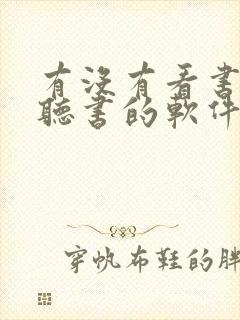 有沒有看書
聽書的軟件
穿帆布鞋的胖